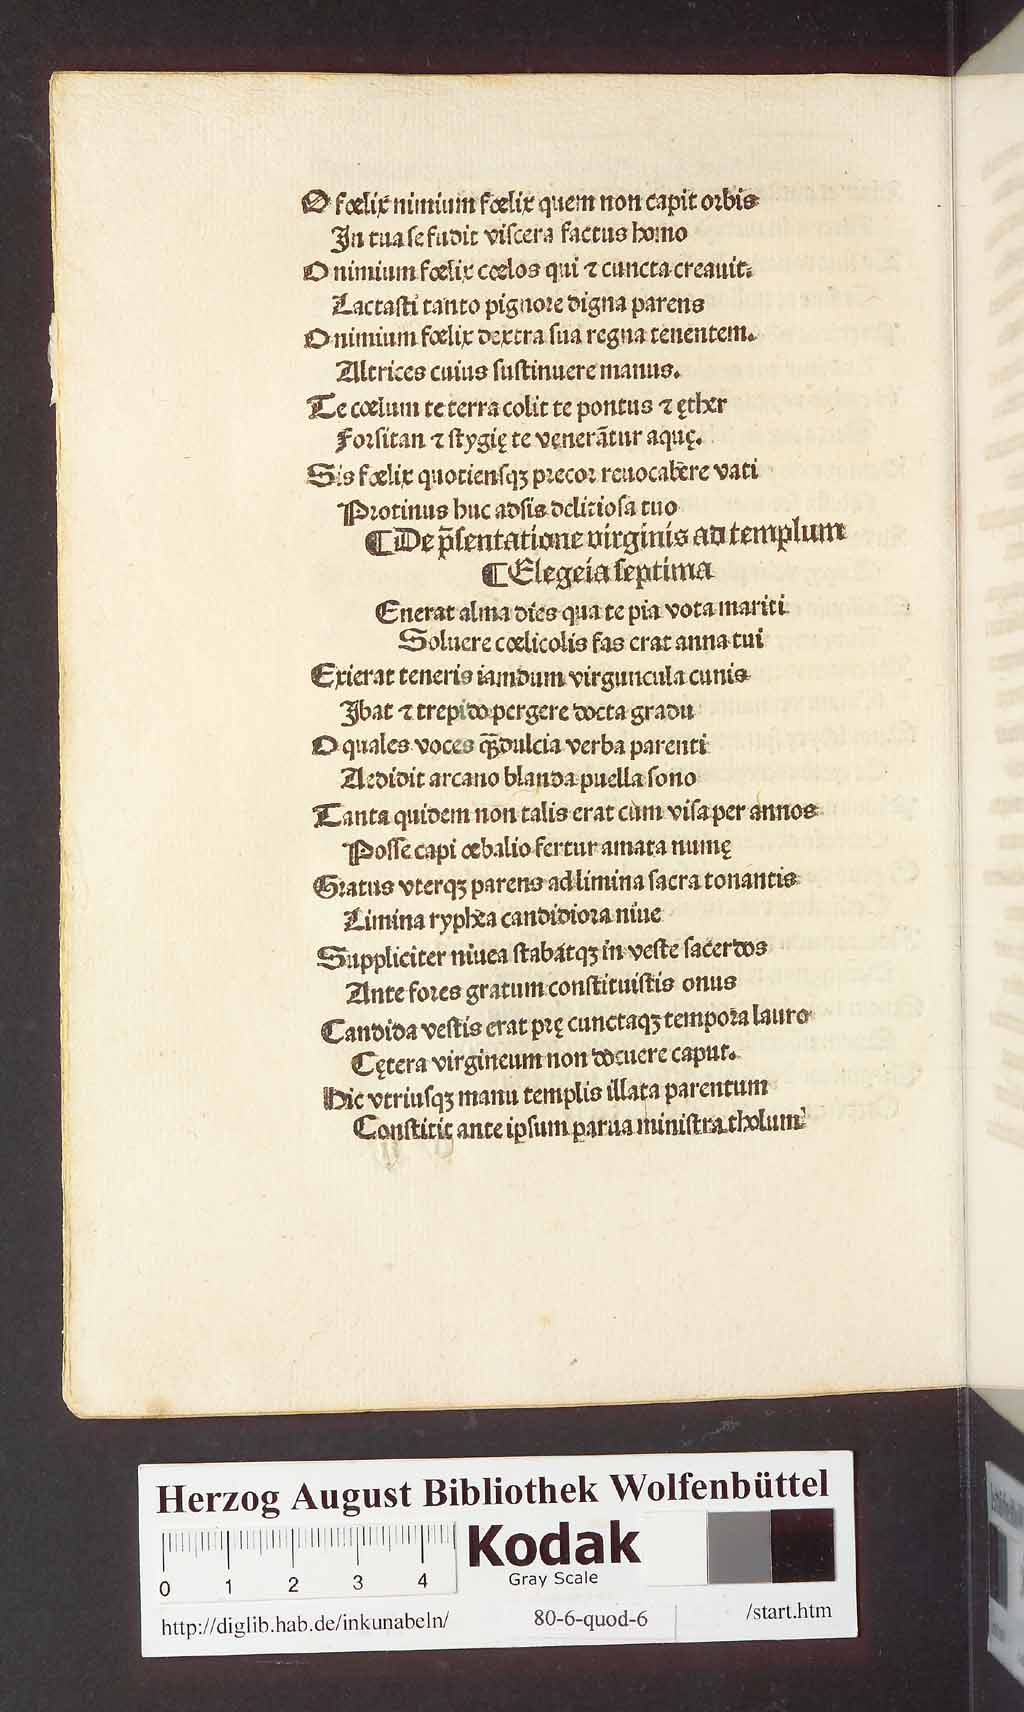 O fœlix nimium fœlix quem non capit orbis
In tua se fudit viscera factus homo
O nimium fœlix cœlos qui ⁊ cuncta creauit.
Lactasti tanto pignore digna parens
O nimium fœlix dextra sua regna tenentem.
Altrices cuius sustinuere manus.
Te cœlum te terra colit te pontus ⁊ ęther
Forsitan ⁊ stygię te venerãtur aquę.
Sis fœlix quotiensqꝫ precor reuocabere vati
Protinus huc adsis delitiosa tuo
¶ De p̃sentatione virginis ad templum
¶ Elegeia septima
Enerat alma dies qua te pia vota mariti
Soluere cœlicolis fas erat anna tui
Exierat teneris iamdum virguncula cunis
Ibat ⁊ trepido pergere docta gradu
O quales voces q̃dulcia verba parenti
Aedidit arcano blanda puella sono
Tanta quidem non talis erat cum visa per annos
Posse capi œbalio fertur amata numę
Gratus vterqꝫ parens ad limina sacra tonantis
Limina ryphea candidiora niue
Suppliciter niuea stabatqꝫ in veste sacerdos
Ante fores gratum constituistis onus
Candida vestis erat prę cunctaqꝫ tempora lauro
Cętera virgineum non docuere caput.
Hic vtriusqꝫ manu templis illata parentum
Constitit ante ipsum parua ministra tholum
Herzog August Bibliothek Wolfenbüttel
Kodak
Gray Scale
0 1 2 3 4
http://diglib.hab.de/inkunabeln/ 80-6-quod-6 /start.htm